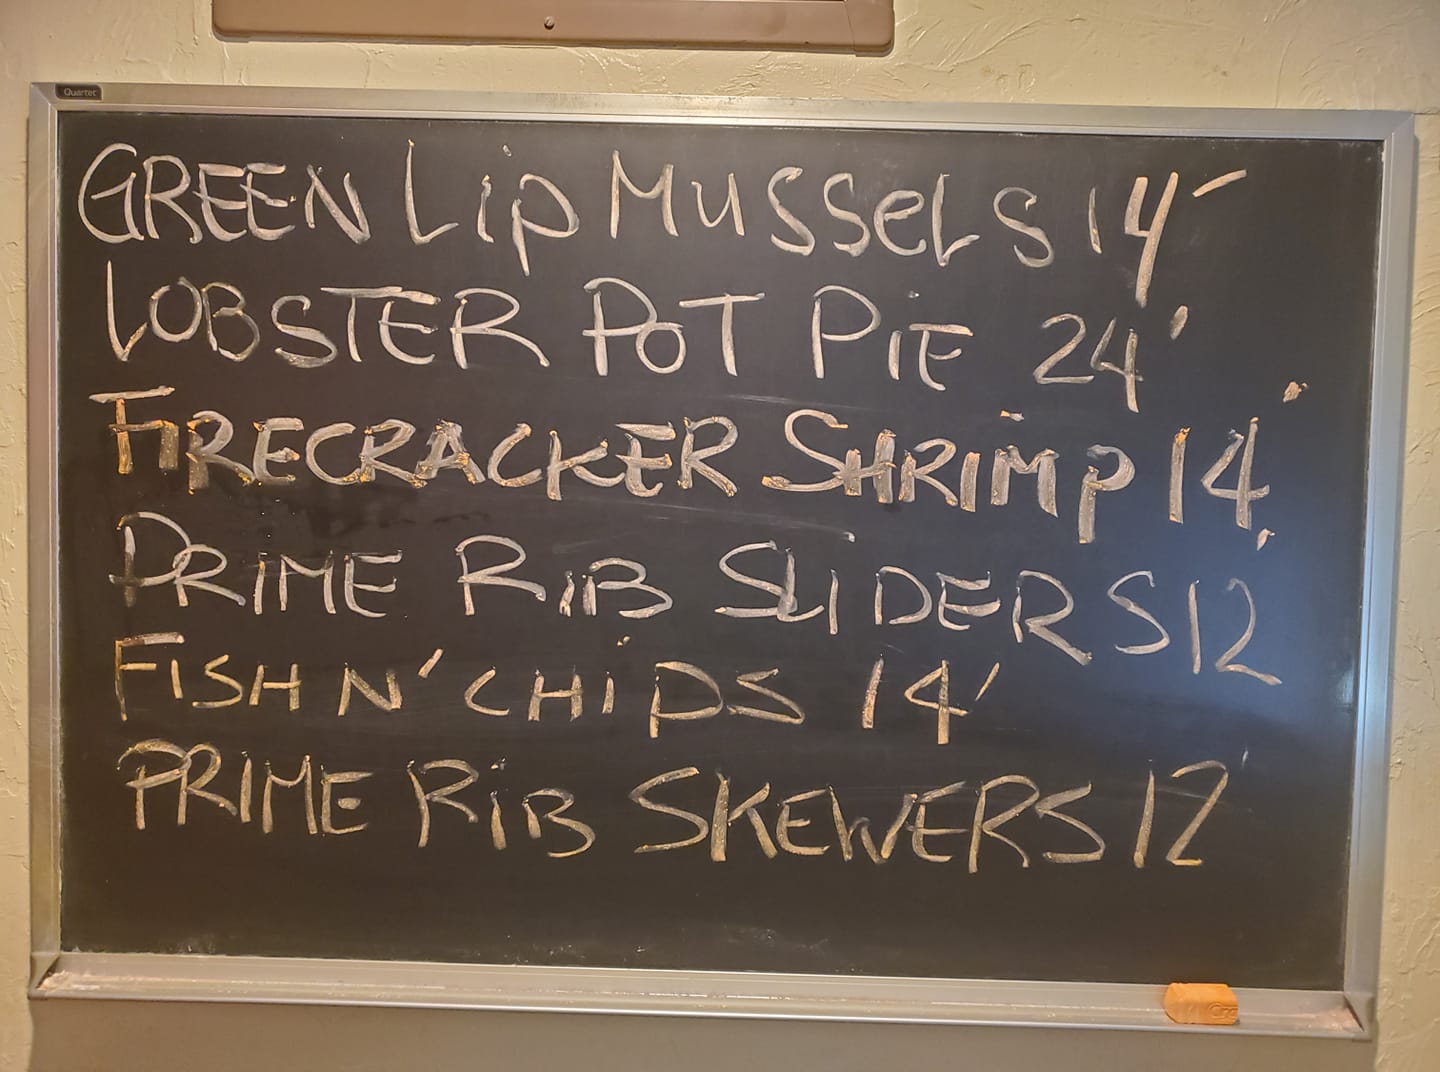 Quartet
GREEN Lip Mussels 14-
LOBSTER POT PiE 24'
FIRECRACKER SHRIMP 14'
PRIME RiB SLIDERS 12'
FISH N' CHiPS 14'
PRIME RiB SKEWERS 12'
Cra